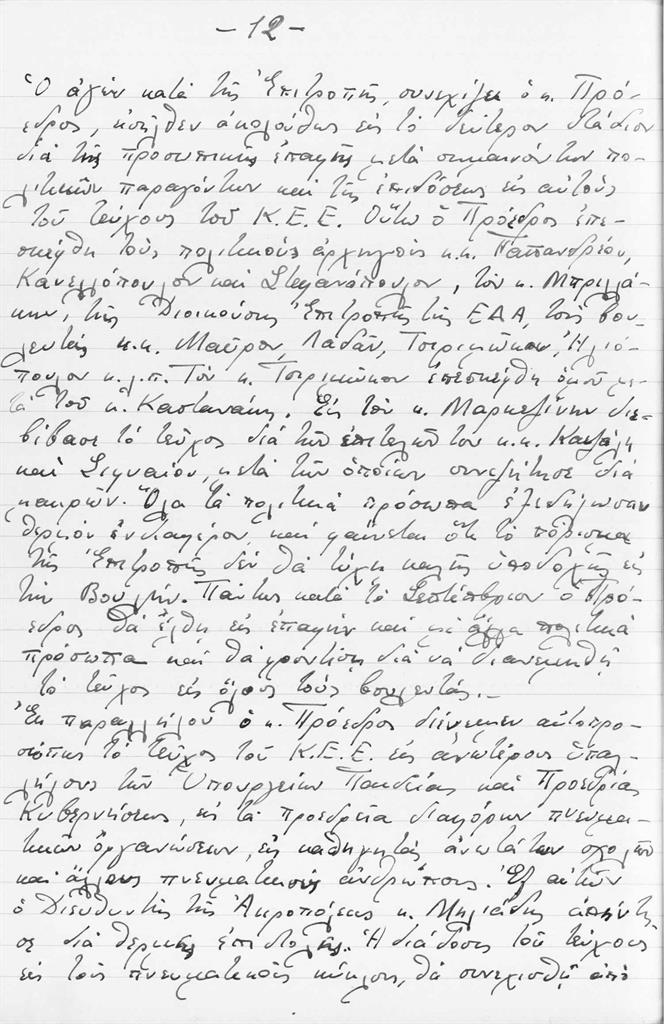 - 12 -
Ὁ ἀγὼν κατὰ τῆς Ἐπιτροπῆς, συνεχίζει ὁ κ. Πρό-
εδρος, εἰσῆλθεν ἀκολούθως εἰς τὸ δεύτερον στάδιον
διὰ τῆς προσωπικῆς ἐπαφῆς μετὰ σημαινόντων πο-
λιτικῶν παραγόντων καὶ τῆς ἐπιδόσεως εἰς αὐτοὺς
τοῦ τεύχους τοῦ Κ.Ε.Ε. Οὕτω ὁ Πρόεδρος ἐπε-
σκέφθη τοὺς πολιτικοὺς ἀρχηγοὺς κ.κ. Παπανδρέου,
Κανελλόπουλον καὶ Στεφανόπουλον, τὸν κ. Μπριλλά-
κην, τῆς Διοικούσης Ἐπιτροπῆς τῆς ΕΔΑ, τοὺς βου-
λευτὰς κ.κ. Μαῦρον, Λαδᾶν, Τσιριμῶκον, Ἠλιό-
πουλον κ.λ.π. Τὸν κ. Τσιριμῶκον ἐπεσκέφθη ὁμοῦ με-
τὰ τοῦ κ. Καστανάκη. Εἰς τὸν κ. Μαρκεζίνην διε-
βίβασε τὸ τεῦχος διὰ τῶν ἐπιτελῶν του κ.κ.
καὶ μετὰ τῶν ὁποίων συνεζήτησε διὰ
μακρῶν. Ὅλα τὰ πολιτικὰ πρόσωπα ἐξεδήλωσαν
θερμὸν ἐνδιαφέρον, καὶ φαίνεται ὅτι τὸ πόρισμα
τῆς Ἐπιτροπῆς δὲν θὰ τύχῃ καλῆς ὑποδοχῆς εἰς
τὴν Βουλήν. Πάντως κατὰ τὸ Σεπτέμβριον ὁ Πρό-
εδρος θὰ ἔλθῃ εἰς ἐπαφὴν καὶ μὲ ἄλλα πολιτικὰ
πρόσωπα καὶ θὰ φροντίσῃ διὰ νὰ διανεμηθῇ
τὸ τεῦχος εἰς ὅλους τοὺς βουλευτάς.-
Ἐκ παραλλήλου ὁ κ. Πρόεδρος διένειμεν αὐτοπρο-
σώπως τὸ τεῦχος τοῦ Κ.Ε.Ε. εἰς ἀνωτέρους ὑπαλ-
λήλους τῶν Ὑπουργείων Παιδείας καὶ Προεδρίας
Κυβερνήσεως, εἰς τὰ προεδρεῖα διαφόρων πνευμα-
τικῶν ὀργανώσεων, εἰς καθηγητὰς ἀνωτάτων σχολῶν
καὶ ἄλλους πνευματικοὺς ἀνθρώπους. Ἐξ αὐτῶν
ὁ Διευθυντὴς τῆς Ἀκροπόλεως κ. Μηλιάδης ἀπήντη-
σε διὰ θερμῆς ἐπιστολῆς. Ἡ διάδοσις τοῦ τεύχους
εἰς τοὺς πνευματικοὺς κύκλους, θὰ συνεχισθῇ ἀπὸ